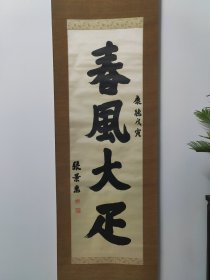 春風大疋
康德戊寅
張景惠